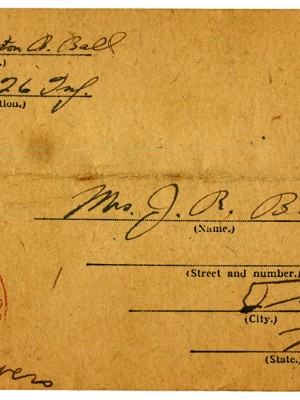 ton D. Ball
.)
26 Inf.
tion.)
Mrs. J. R. B
(Name.)
(Street and number.)
(City.)
(State.)